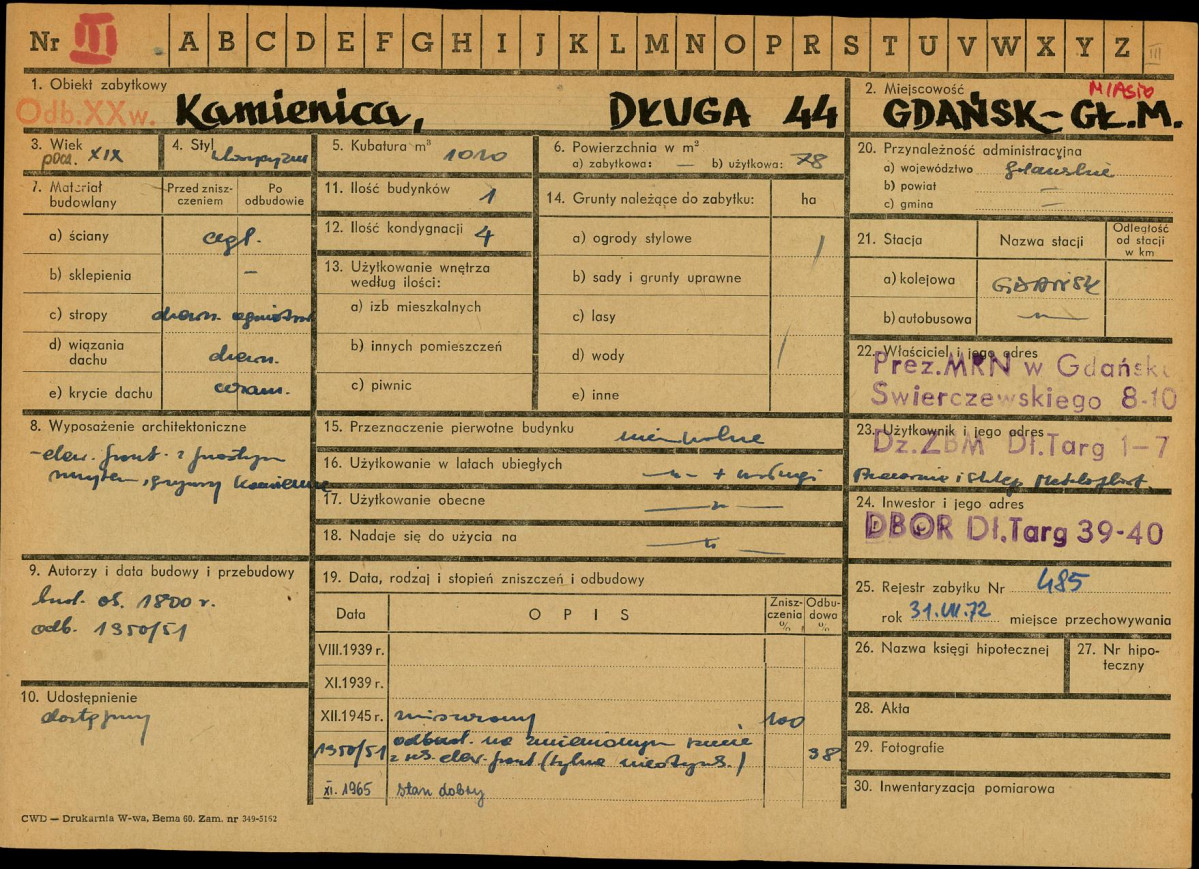 Nr III A B C D E F G H I J K L M N O P R S T U V W X Y Z III
1. Obiekt zabytkowy
Odb.XXw. Kamienica, DŁUGA 44
2. Miejscowość MIASTO
GDAŃSK-GŁ.M.
3. Wiek
pocz. XIX
4. Styl klasycyzm
5. Kubatura m³ 1010
6. Powierzchnia w m²
a) zabytkowa: — b) użytkowa: 78
20. Przynależność administracyjna
a) województwo gdańskie
b) powiat —
c) gmina —
7. Materiał budowlany
Przed zniszczeniem
Po odbudowie
a) ściany cegł.
b) sklepienia —
c) stropy drewn. ogniotrw.
d) wiązania dachu drewn.
e) krycie dachu ceram.
11. Ilość budynków 1
12. Ilość kondygnacji 4
13. Użytkowanie wnętrza
według ilości:
a) izb mieszkalnych
b) innych pomieszczeń
c) piwnic
14. Grunty należące do zabytku: ha
a) ogrody stylowe
b) sady i grunty uprawne
c) lasy
d) wody
e) inne
21. Stacja
Nazwa stacji
Odległość
od stacji
w km
a) kolejowa GDAŃSK
b) autobusowa —"—
22. Właściciel i jego adres
Prez.MRN w Gdańsku
Swierczewskiego 8-10
23. Użytkownik i jego adres
Dz.ZBM Dł.Targ 1-7
Pracownie i sklep
24. Inwestor i jego adres
DBOR Dł.Targ 39-40
8. Wyposażenie architektoniczne
- elew. front. z prostym
gzymsy kamienne
15. Przeznaczenie pierwotne budynku mieszkalne
16. Użytkowanie w latach ubiegłych —"— + usługi
17. Użytkowanie obecne —"—
18. Nadaje się do użycia na —"—
9. Autorzy i data budowy i przebudowy
bud. ok. 1800 r.
odb. 1950/51
10. Udostępnienie
dostępny
19. Data, rodzaj i stopień zniszczeń i odbudowy
Data
OPIS
Zniszczenia %
Odbudowa %
VIII.1939 r.
XI.1939 r.
XII.1945 r. zniszczony 100
1950/51 odbud. na zmienionym rzucie
z rek. elew. front (tylna nieotynk.) 38
XI. 1965 stan dobry
25. Rejestr zabytku Nr 485
rok 31.VII.72 miejsce przechowywania
26. Nazwa księgi hipotecznej
27. Nr hipoteczny
28. Akta
29. Fotografie
30. Inwentaryzacja pomiarowa
CWD — Drukarnia W-wa, Bema 60. Zam. nr 349-5162